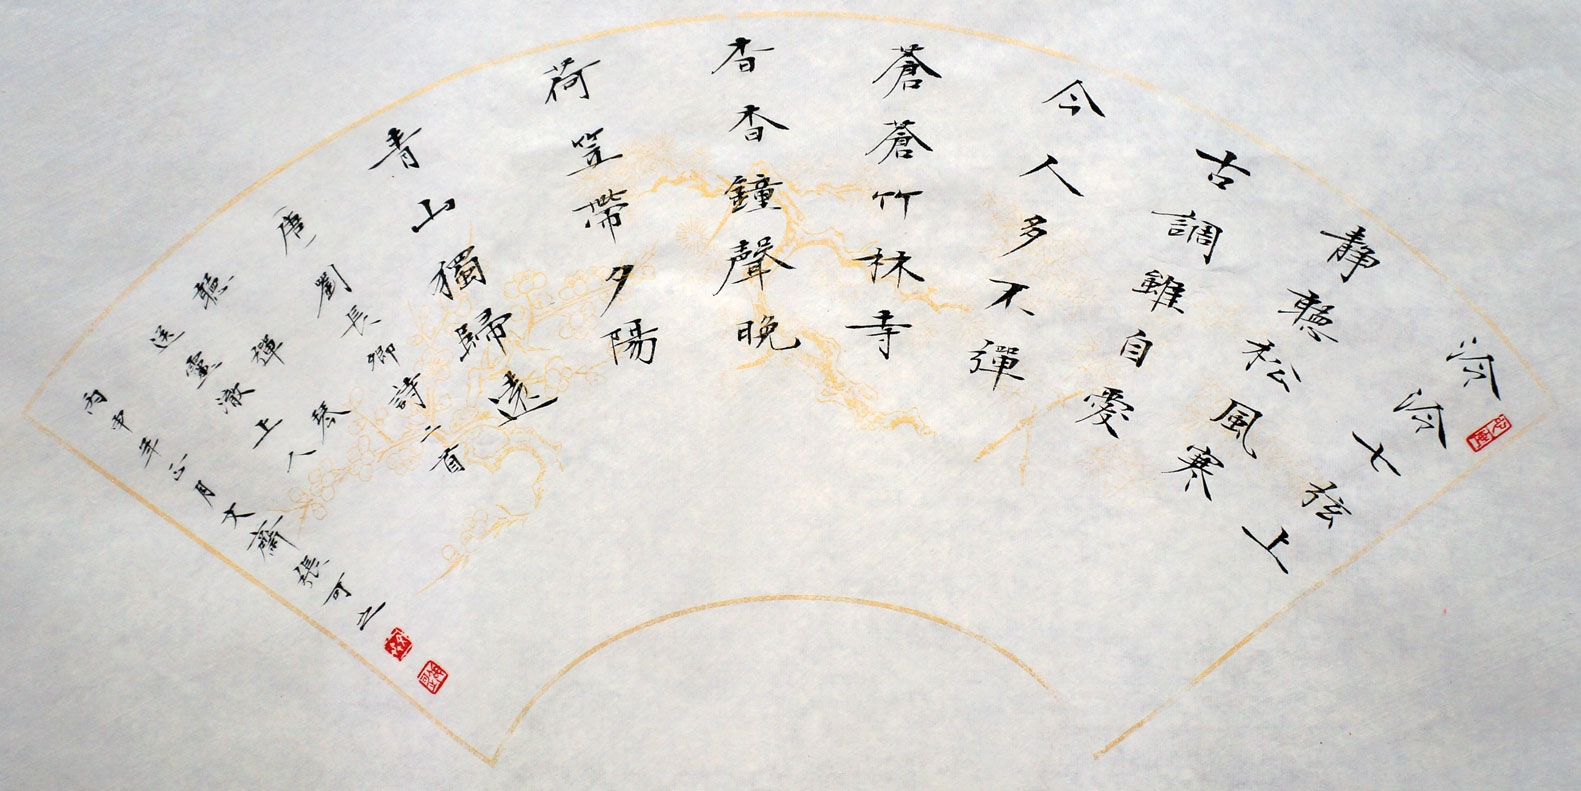 泠泠七弦上
靜聽松風寒
古調雖自愛
今人多不彈
蒼蒼竹林寺
杳杳鐘聲晚
荷笠帶夕陽
青山獨歸遠
唐劉長卿詩二首
聽彈琴
送靈澈上人
丙申年正月文齋張可之